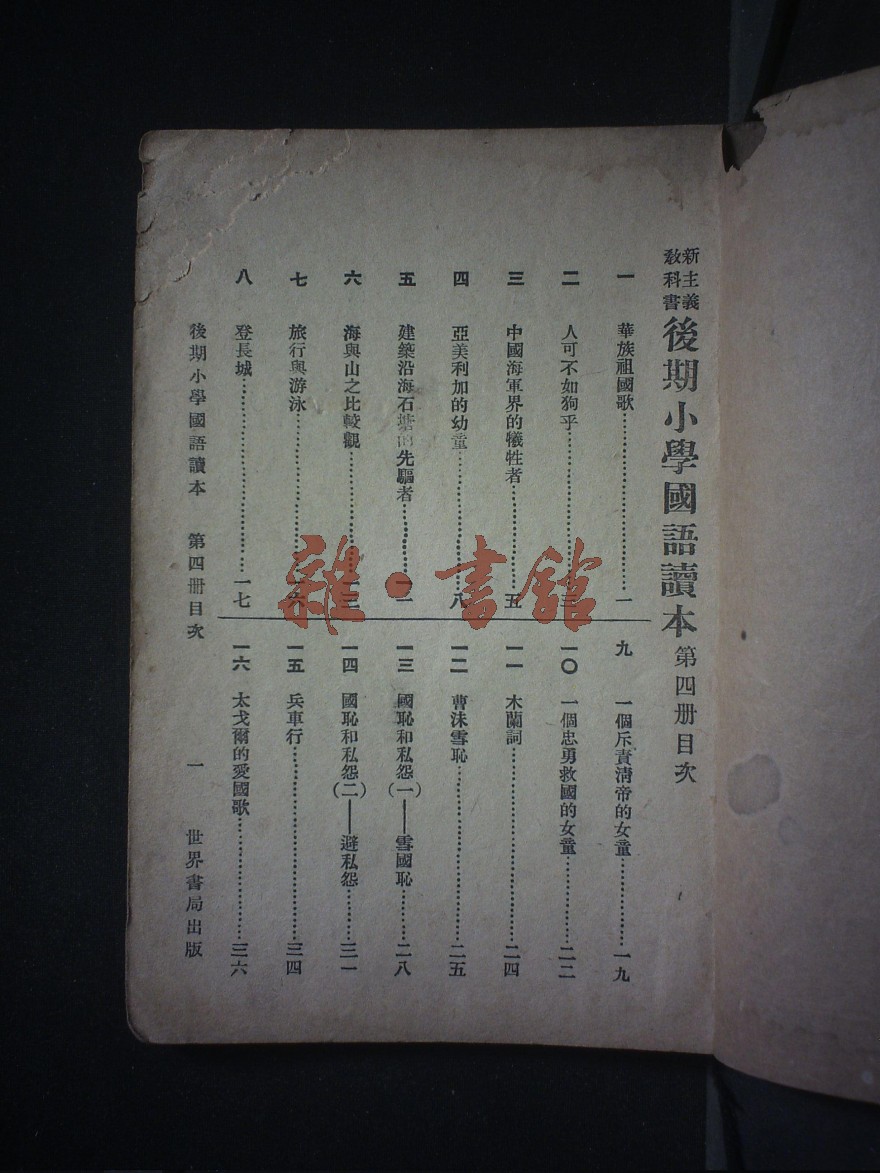 新主義教科書 後期小學國語讀本 第四册目次
一 華族祖國歌……一
二 人可不如狗乎……三
三 中國海軍界的犧牲者……五
四 亞美利加的幼童……八
五 建築沿海石塘的先驅者……一一
六 海與山之比較觀……一三
七 旅行與游泳……一六
八 登長城……一七
九 一個斥責清帝的女童……一九
一〇 一個忠勇救國的女童……二二
一一 木蘭詞……二四
一二 曹沬雪恥……二五
一三 國恥和私怨(一)——雪國恥……二八
一四 國恥和私怨(二)——避私怨……三一
一五 兵車行……三四
一六 太戈爾的愛國歌……三六
後期小學國語讀本 第四册目次 一 世界書局出版
雜·書館